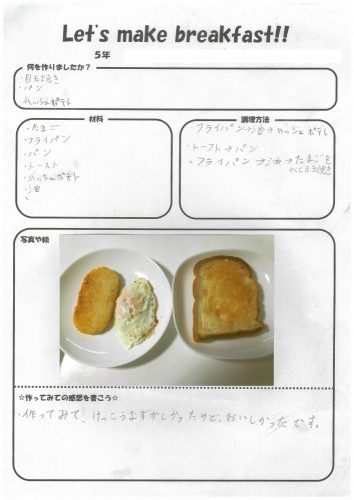 Let's make breakfast!!
５年
何を作りましたか？
・目玉やき
・パン
・ハッシュポテト
材料
・たまご
・フライパン
・パン
・トースト
・ハッシュポテト
・油
調理方法
・フライパン→油→ハッシュポテト
・トースト→パン
・フライパン→油→たまごを
写真や絵
☆作ってみての感想を書こう☆
・作ってみて、けっこうむずかしかったけど、おいしかったです。